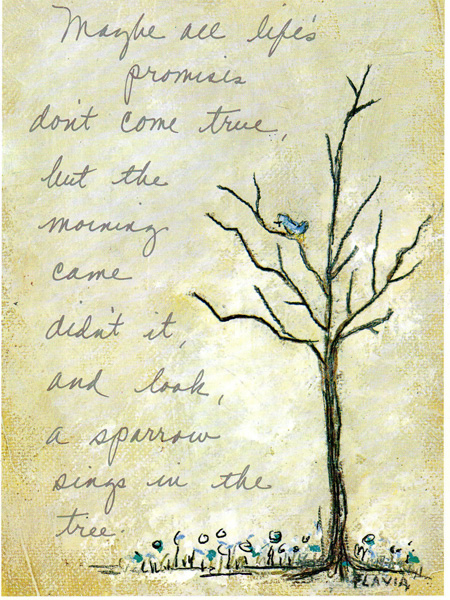 Maybe all life's
promises
don't come true,
but the
morning
came
didn't it,
and look,
a sparrow
sings in the
tree.
FLAVIA